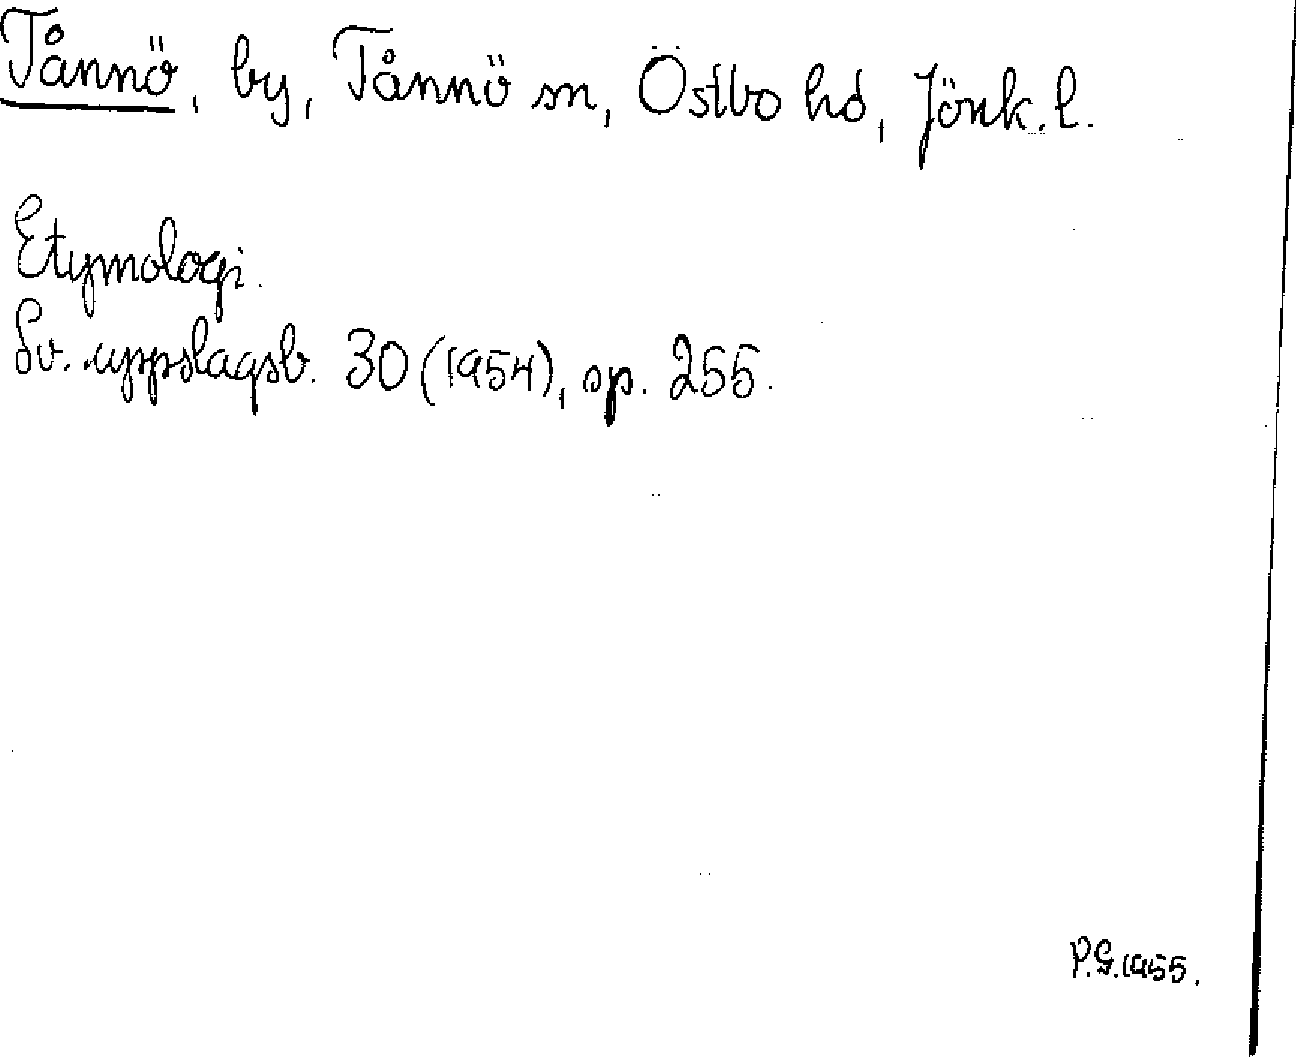 Tånnö, by, Tånnö sn, Östbo hd, Jönk. l.
Etymologi.
Sv. uppslagsb. 30 (1954), sp. 255.
P.G. 1955.